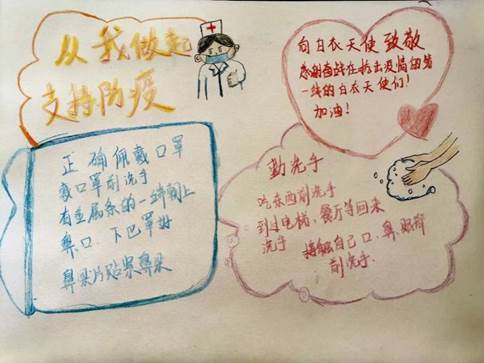 从我做起
支持防疫
向白衣天使致敬
感谢奋战在抗击疫情的第
一线的白衣天使们！
加油！
正确佩戴口罩
戴口罩前洗手
有金属条的一端朝上
鼻、口、下巴罩好
鼻夹
鼻梁
勤洗手
吃东西前洗手
到过电梯、餐厅等回来
洗手
接触自己口、鼻、眼部
前洗手